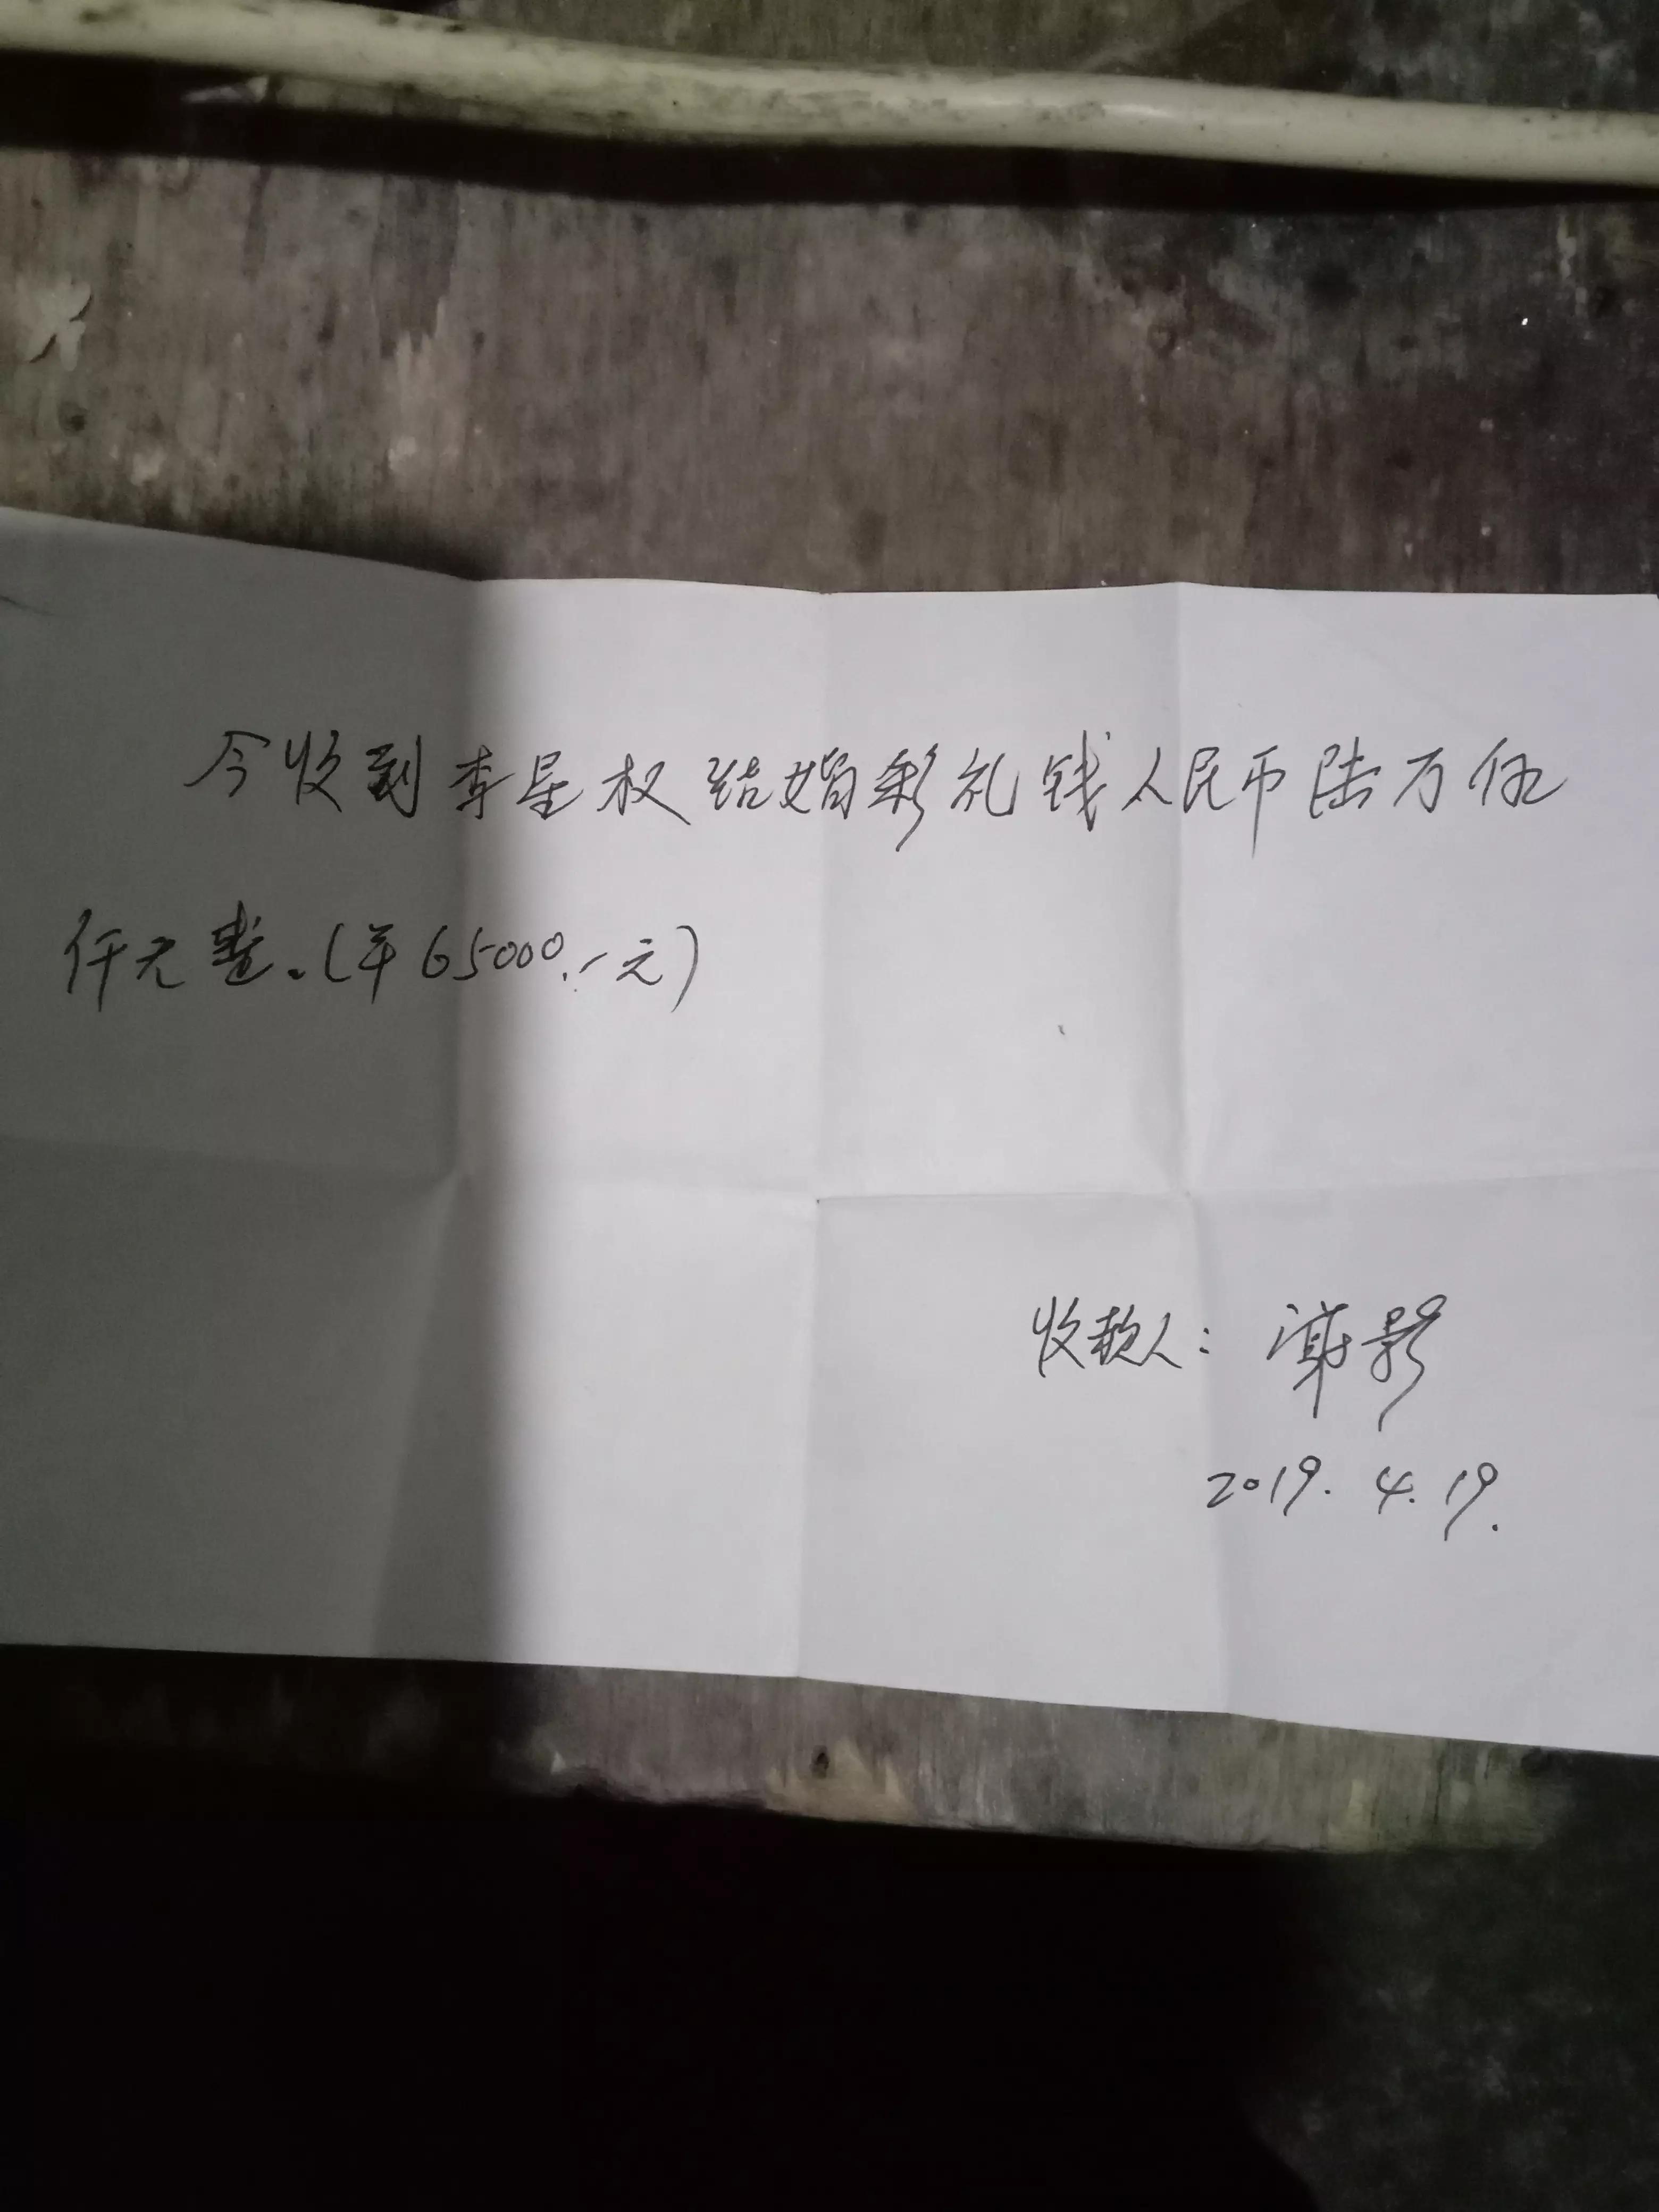 今收到李星权结婚彩礼钱人民币陆万伍
仟元整。(¥65000.-元)
收款人: 谢影
2019.4.19.